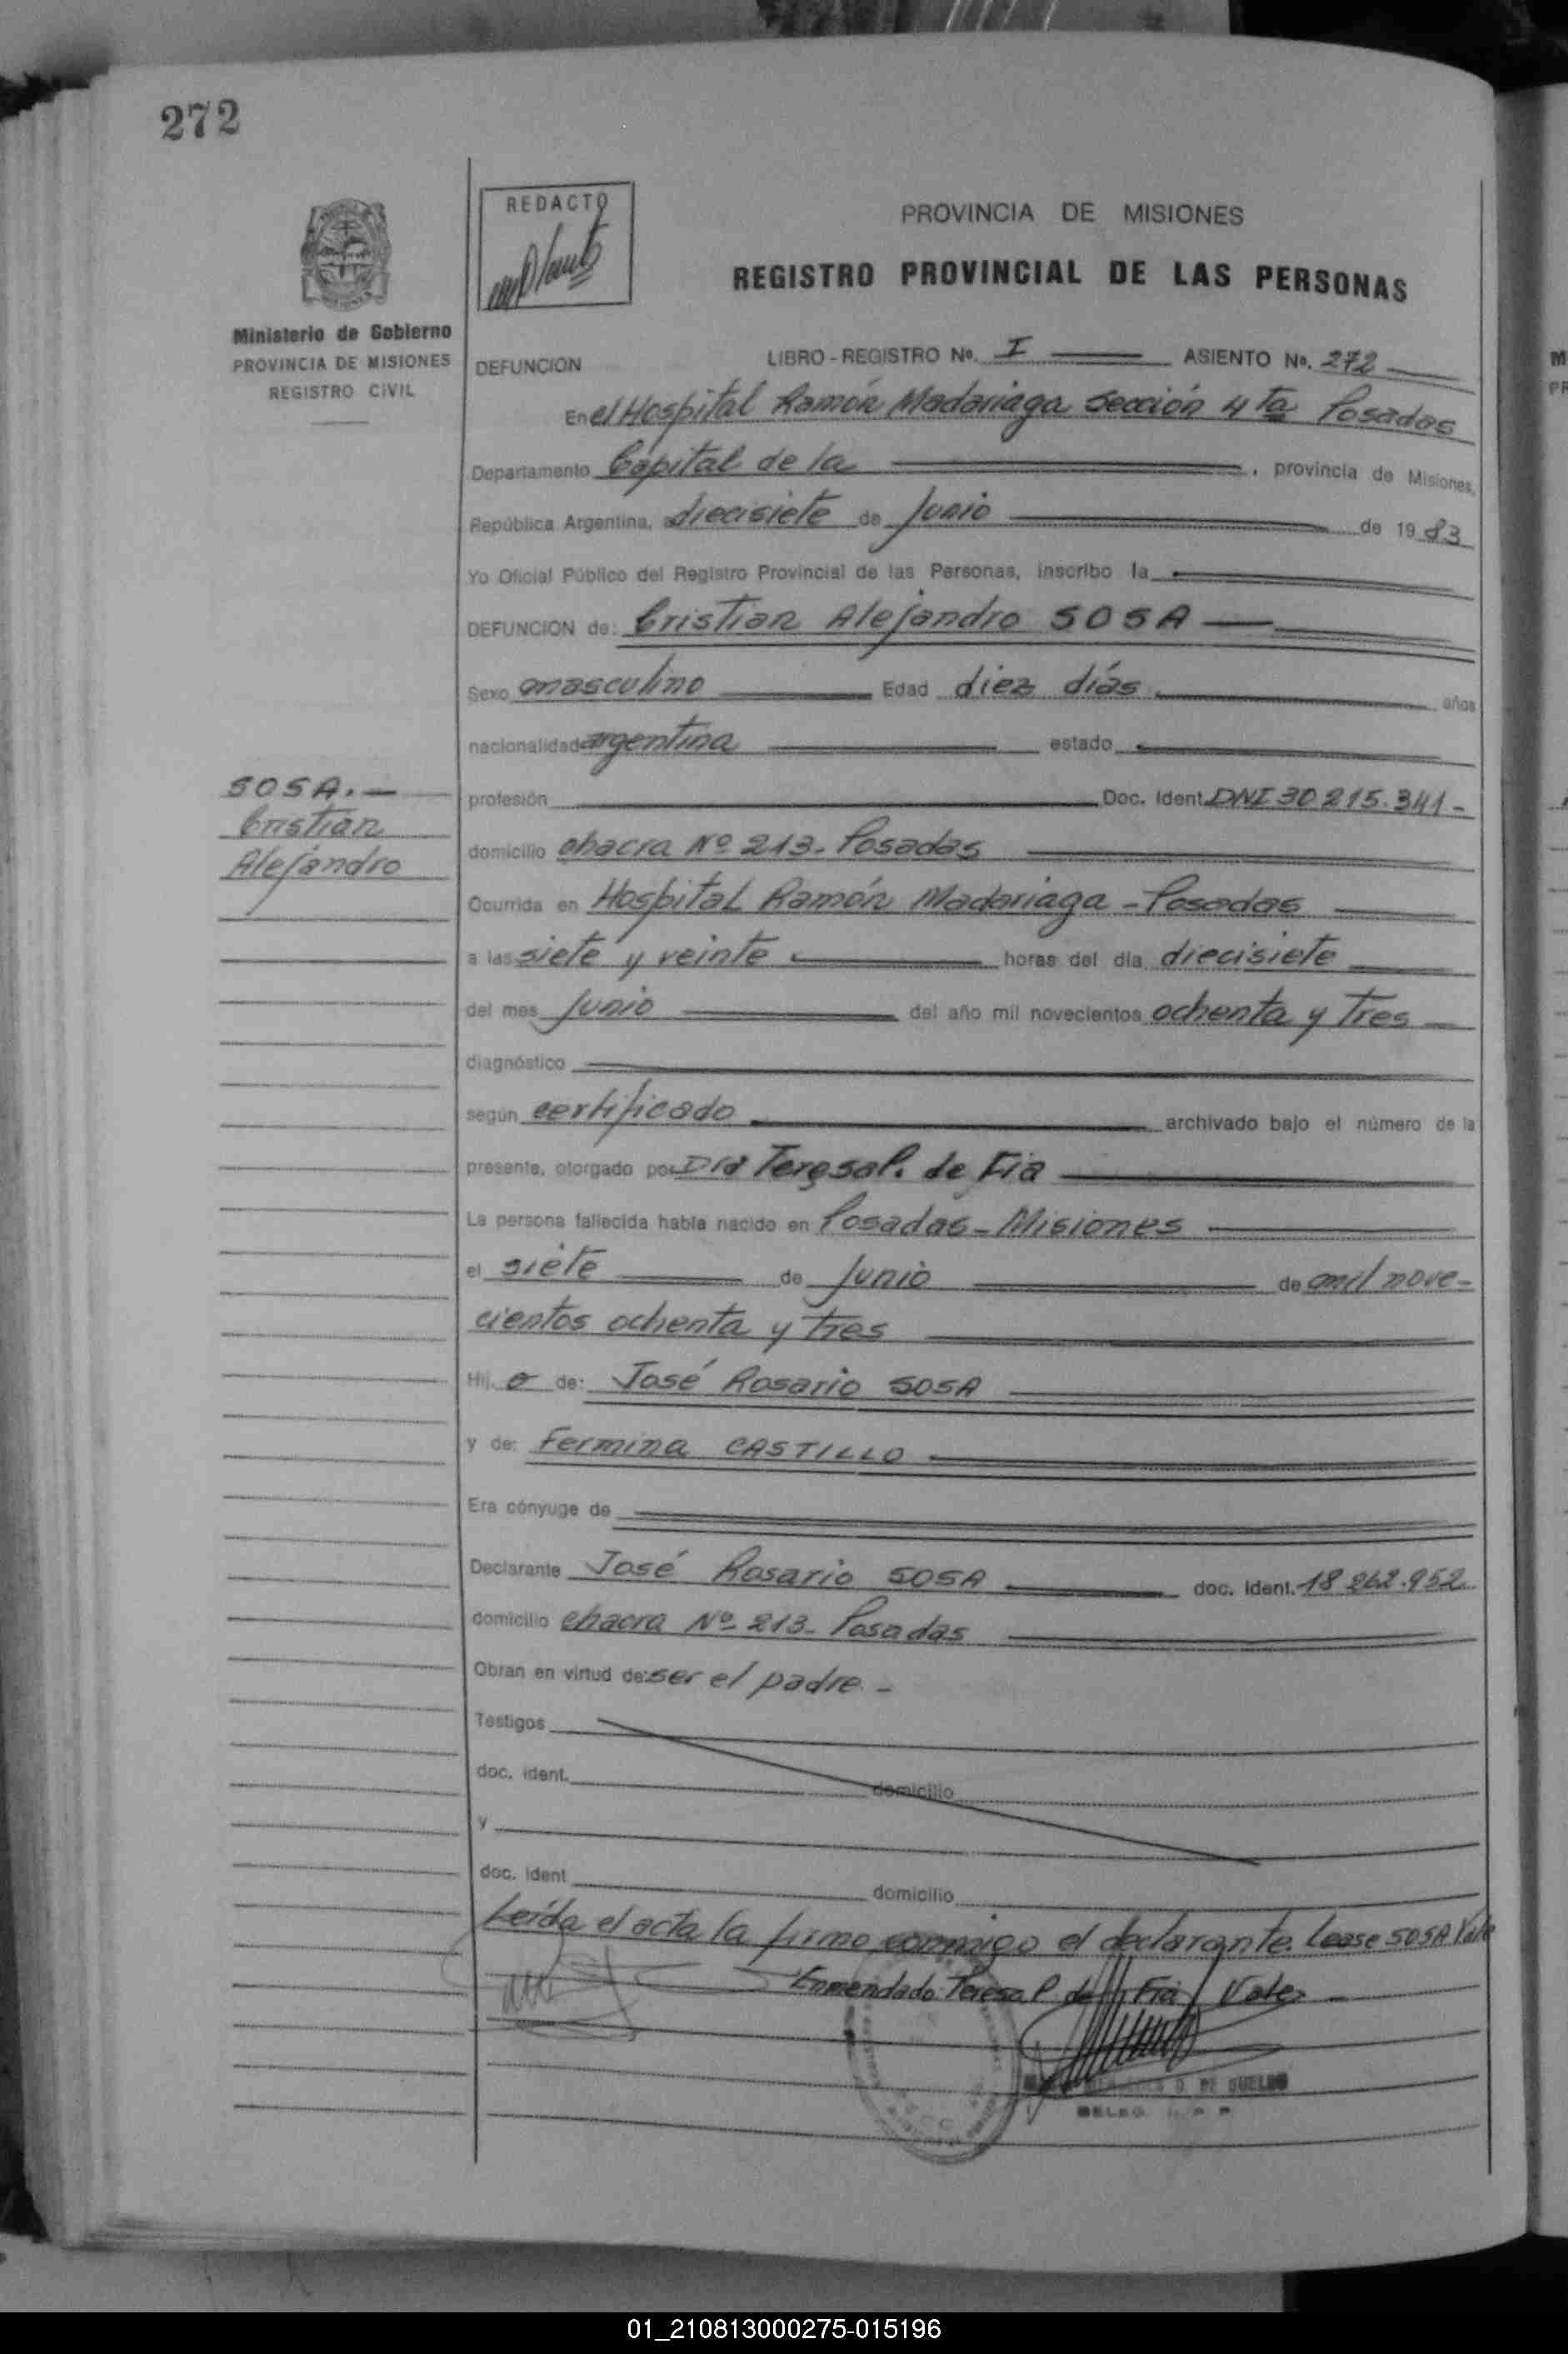 272
REDACTO
PROVINCIA DE MISIONES
REGISTRO PROVINCIAL DE LAS PERSONAS
Ministerio de Gobierno
PROVINCIA DE MISIONES
REGISTRO CIVIL
DEFUNCION LIBRO - REGISTRO No. I ASIENTO No. 272
En el Hospital Ramón Madariaga Sección 4ta Posadas
Departamento Capital de la , provincia de Misiones,
República Argentina, a diecisiete de Junio de 1983
Yo Oficial Público del Registro Provincial de las Personas, inscribo la
DEFUNCION de: Cristian Alejandro SOSA
Sexo masculino Edad diez días años
nacionalidad argentina estado
SOSA.-
Cristian
Alejandro
profesión Doc. Ident. DNI 30 215.341-
domicilio chacra Nº 213. Posadas
Ocurrida en Hospital Ramón Madariaga - Posadas
a las siete y veinte horas del día diecisiete
del mes Junio del año mil novecientos ochenta y tres
diagnóstico
según certificado archivado bajo el número de la
presente, otorgado por Dra Teresa P. de Fia
La persona fallecida había nacido en Posadas - Misiones
el siete de Junio de mil nove-
cientos ochenta y tres
Hij o de: José Rosario SOSA
y de: Fermina CASTILLO
Era cónyuge de
Declarante José Rosario SOSA doc. Ident. 18 262.952
domicilio chacra Nº 213. Posadas
Obran en virtud de: ser el padre. -
Testigos
doc. ident. domicilio
y
doc. ident domicilio
Leída el acta la firma conmigo el declarante. Lease SOSA Vale
Enmendado: Teresa P. de Fia Vale
D. DE
01_210813000275-015196